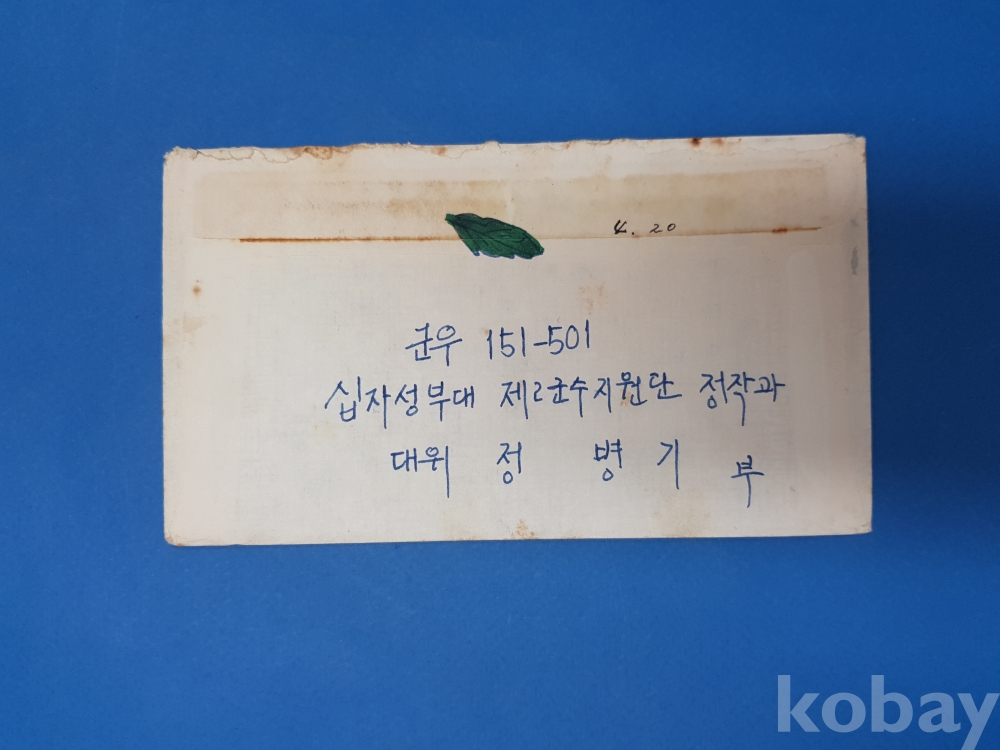 4. 20
군우 151-501
십자성부대 제2군수지원단 정작과
대위 정 병 기 부
kobay